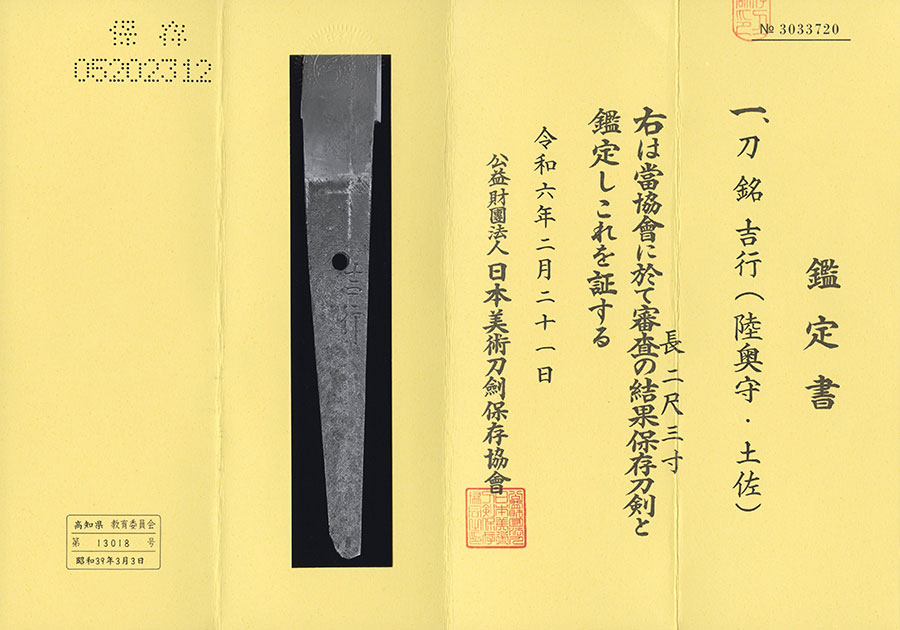 № 3033720
鑑定書
一、刀 銘 吉行(陸奥守・土佐)
長二尺三寸
右は當協會に於て審査の結果保存刀剣と
鑑定しこれを証する
令和六年二月二十一日
公益財團法人 日本美術刀劍保存協會
吉行
保存
05202312
高知県 教育委員会
第 13018 号
昭和39年3月3日